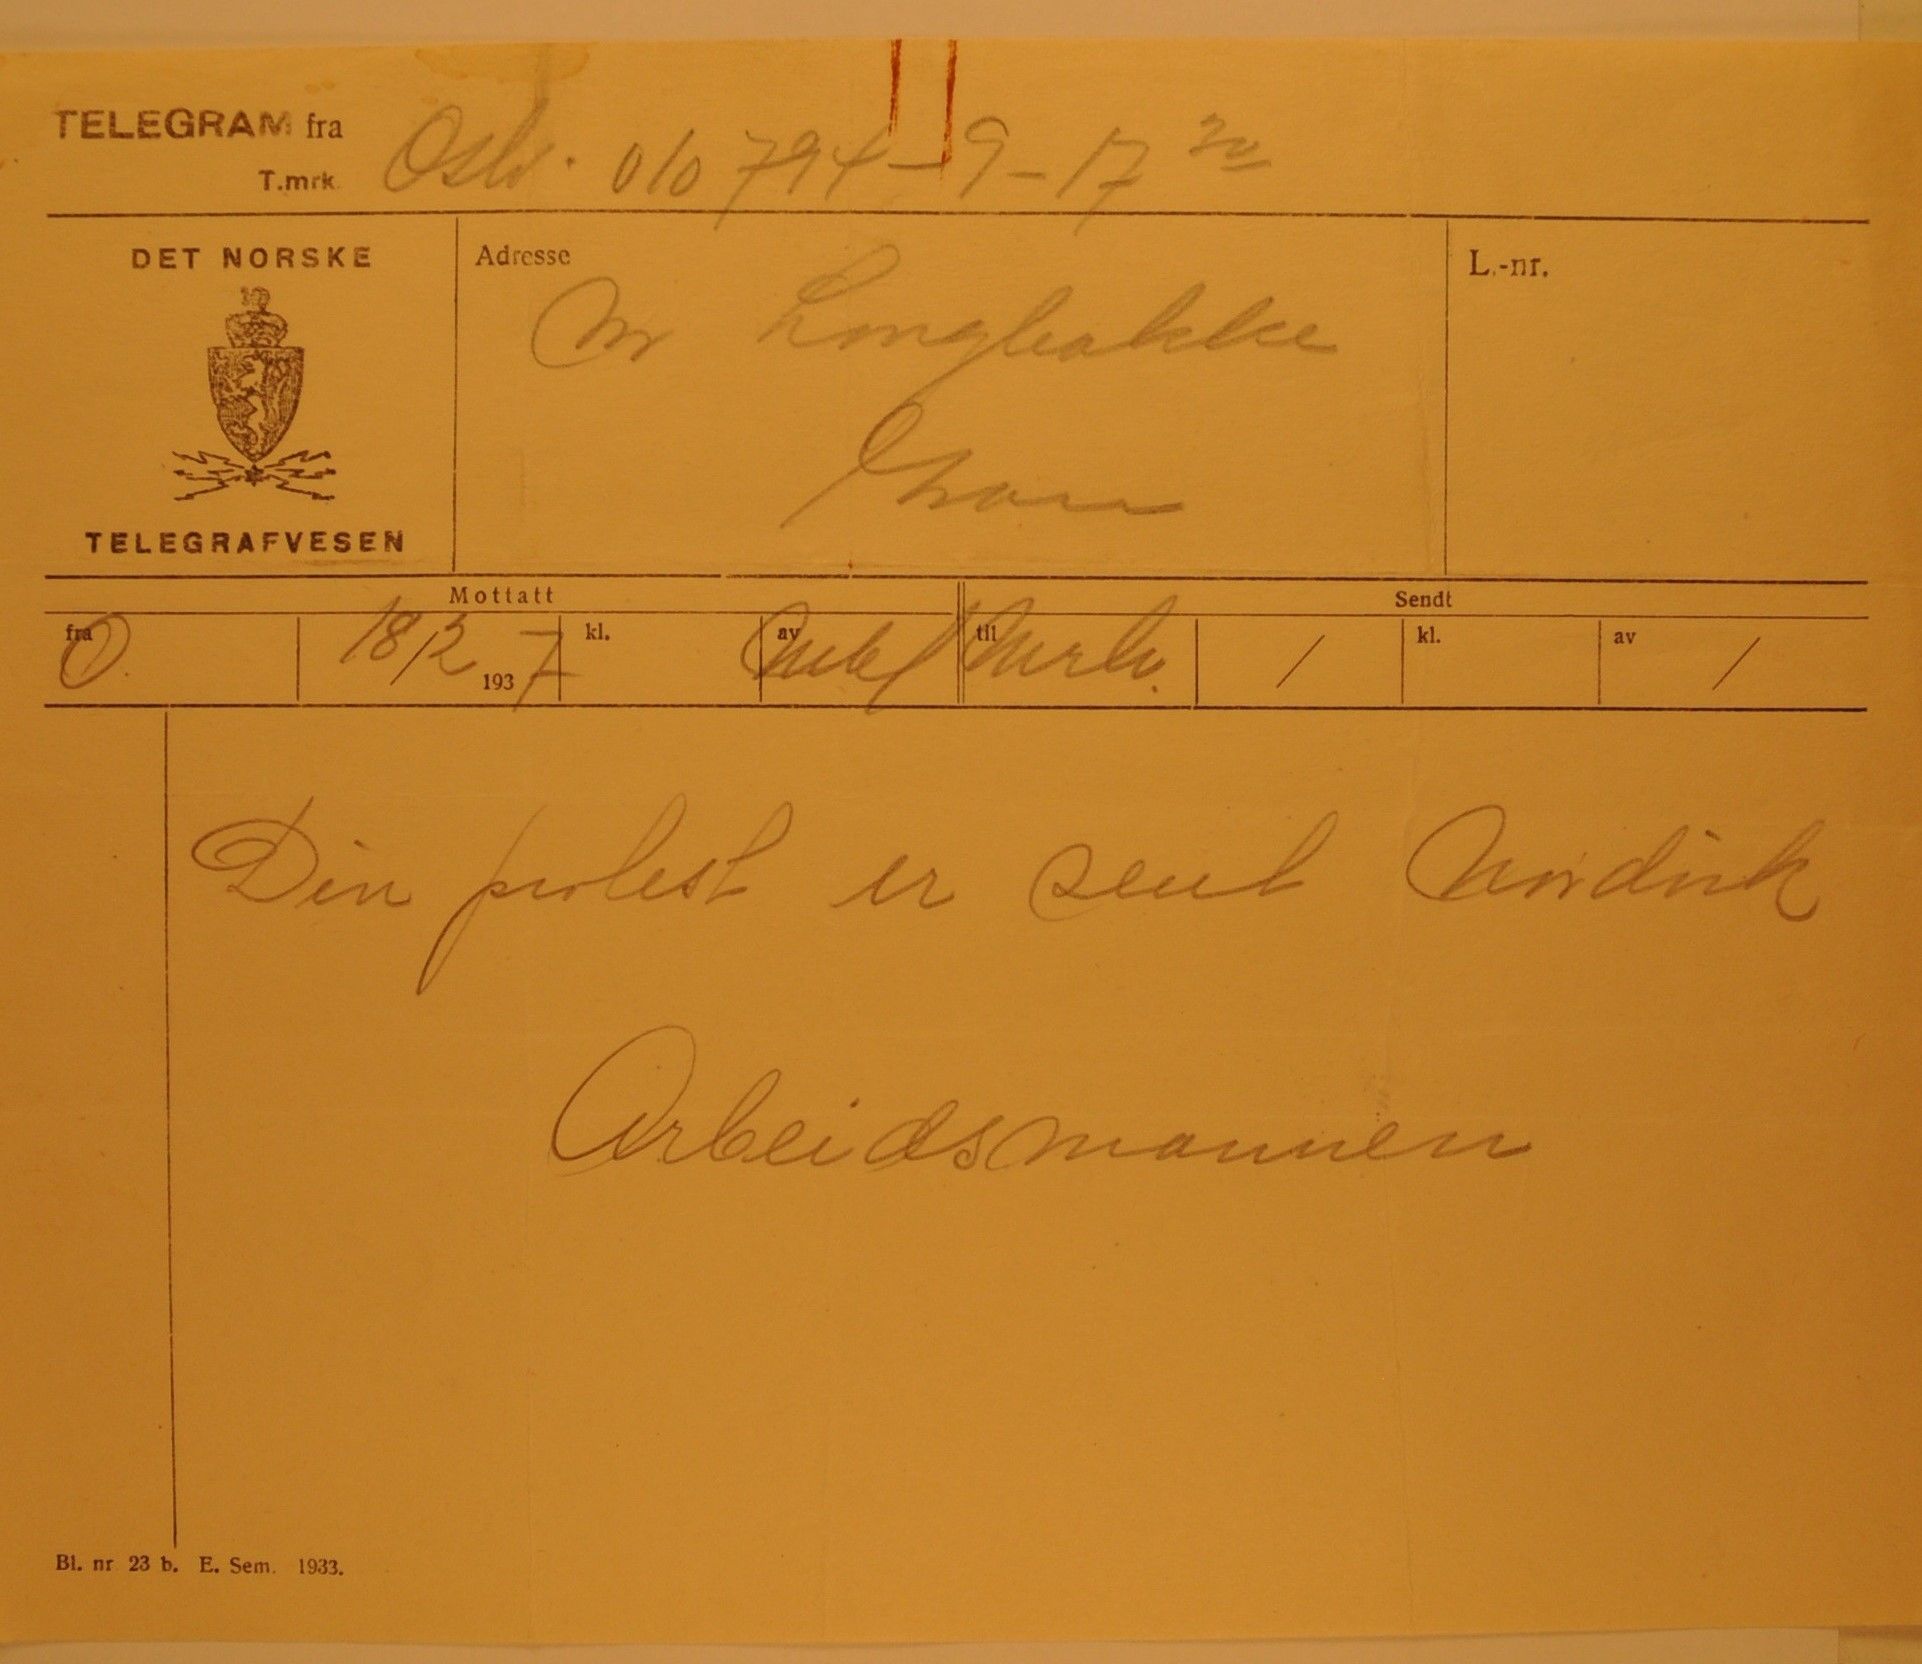 TELEGRAM fra
T.mrk. Oslo. 010 794 - 9 - 17 30
DET NORSKE
TELEGRAFVESEN
Adresse
M Longbakke
L.-nr.
Mottatt
Sendt
fra O. 18/2 1937 kl. av til / kl. av /
Din protest er sent Nordisk
Arbeidsmannen
Bl. nr 23 b. E. Sem. 1933.